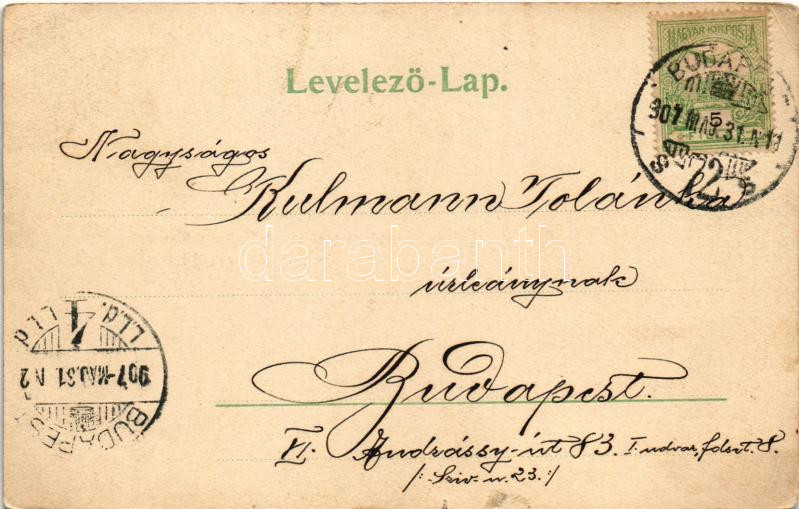 MAGYAR KIR. POSTA
5
BUDAPEST
907 MÁJ. 31. N 11
72
Levelező-Lap.
Nagyságos
Kulmann Jolánka
úrleánynak
Budapest.
VI. Andrássy-út 83. I. udvar, földszt. 8.
/: Sziv-u. 23. :/
BUDAPEST
907 MÁJ. 31. N 2
darabanth